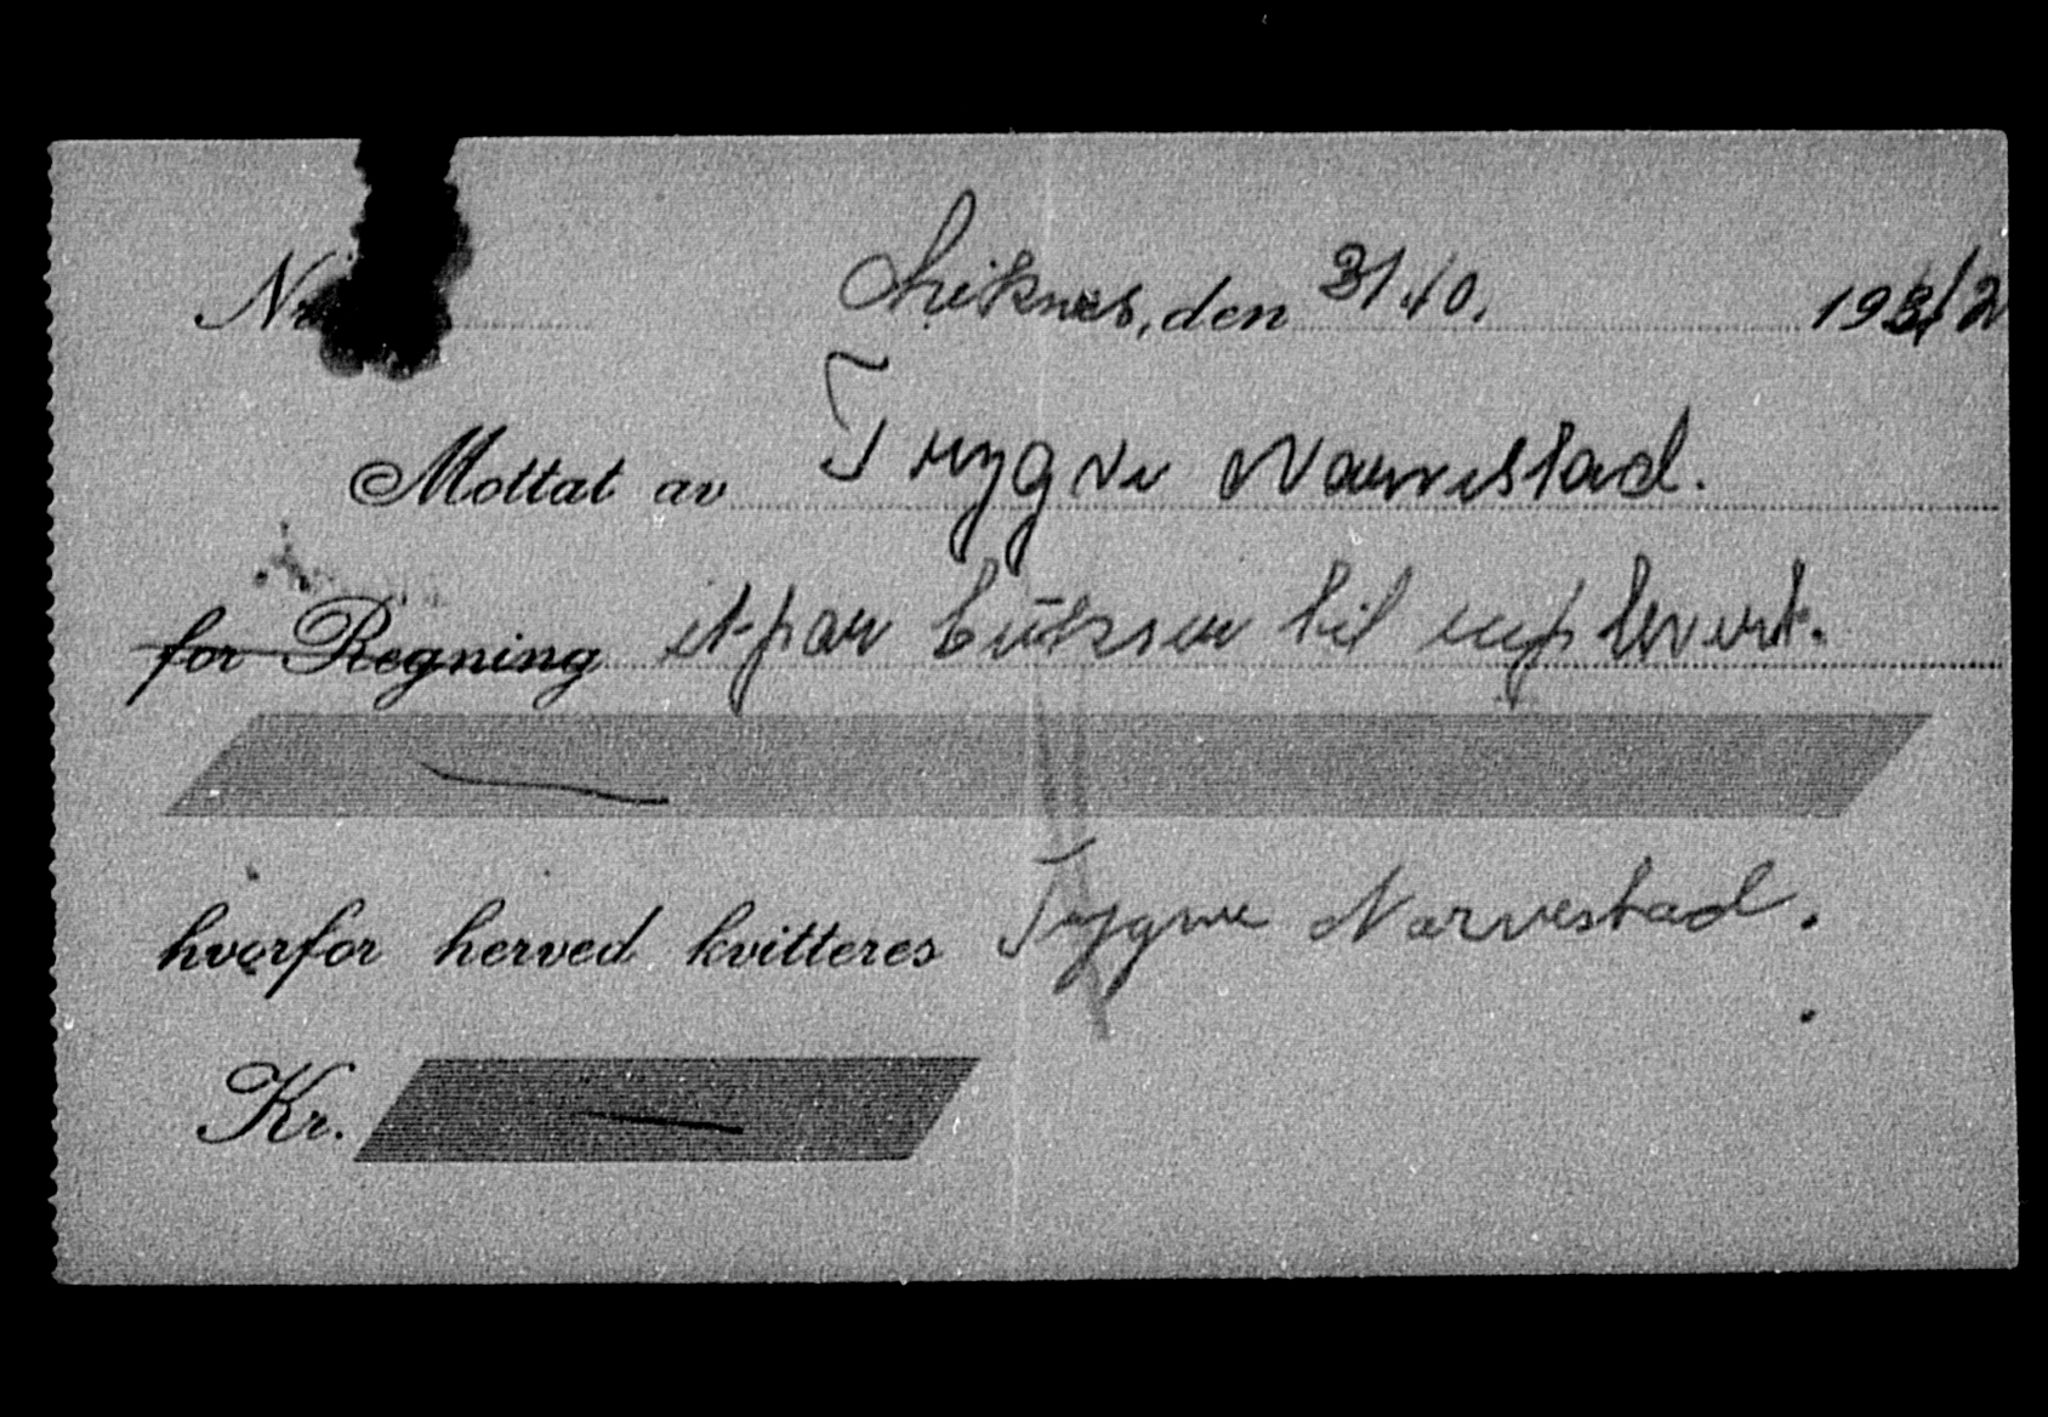 Nr.
Liknes, den 31/10. 1942
Mottat av Trygve Narvestad.
for Regning et par bukser til utlevert.
hvorfor herved kvitteres Trygve Narvestad.
Kr.